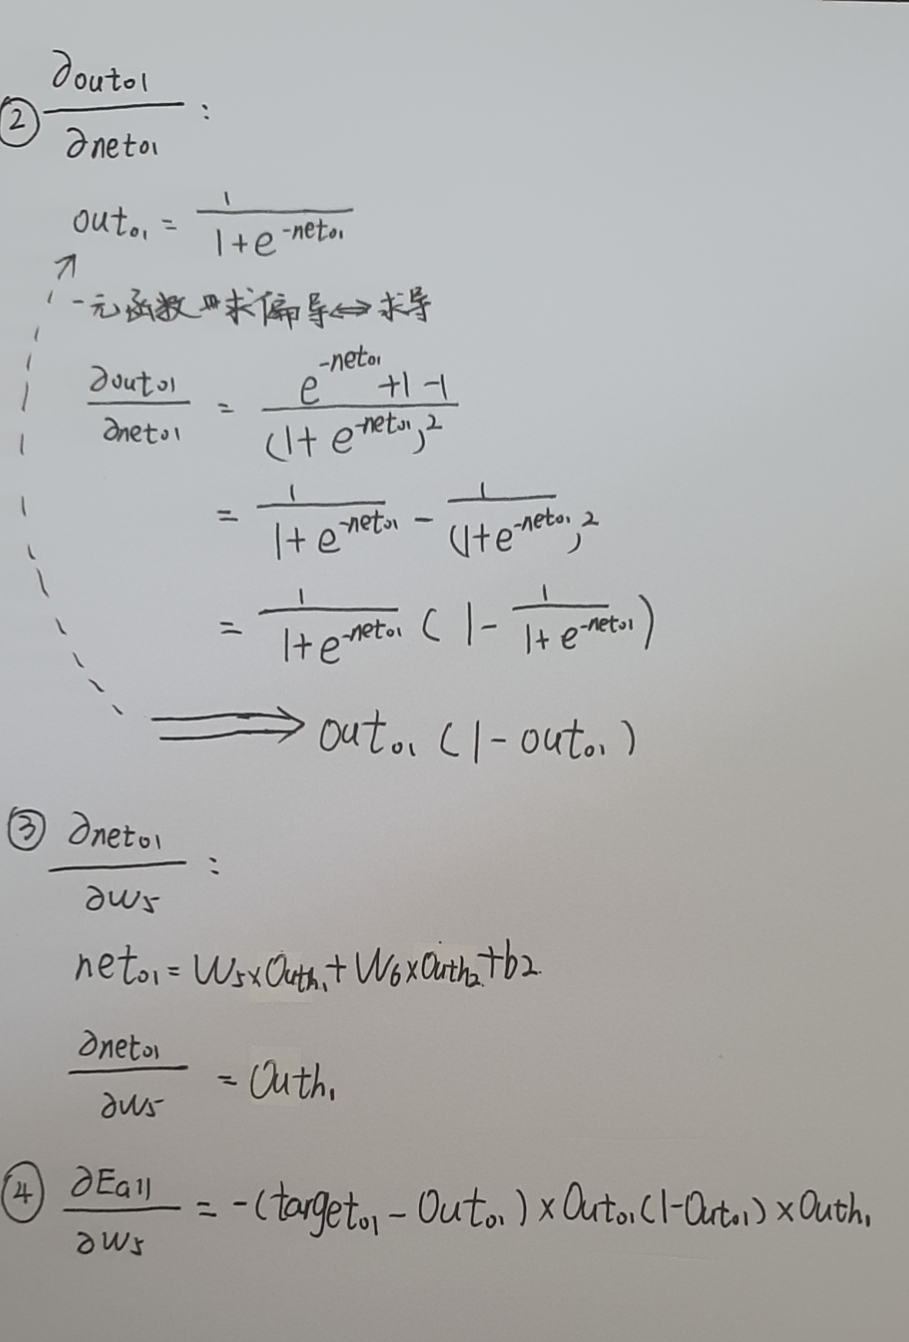 ② ∂out₀₁/∂net₀₁ :
out₀₁ = 1/(1+e^(-net₀₁))
一元函数 求偏导⇔求导
∂out₀₁/∂net₀₁ = (e^(-net₀₁)+1-1)/(1+e^(-net₀₁))²
= 1/(1+e^(-net₀₁)) - 1/(1+e^(-net₀₁))²
= 1/(1+e^(-net₀₁)) (1- 1/(1+e^(-net₀₁)))
⟹ out₀₁(1-out₀₁)
③ ∂net₀₁/∂w₅ :
net₀₁ = W₅×Outh₁+W₆×Outh₂+b2
∂net₀₁/∂w₅ = Outh₁
④ ∂Eall/∂w₅ = -(target₀₁-Out₀₁)×Out₀₁(1-Out₀₁)×Outh₁